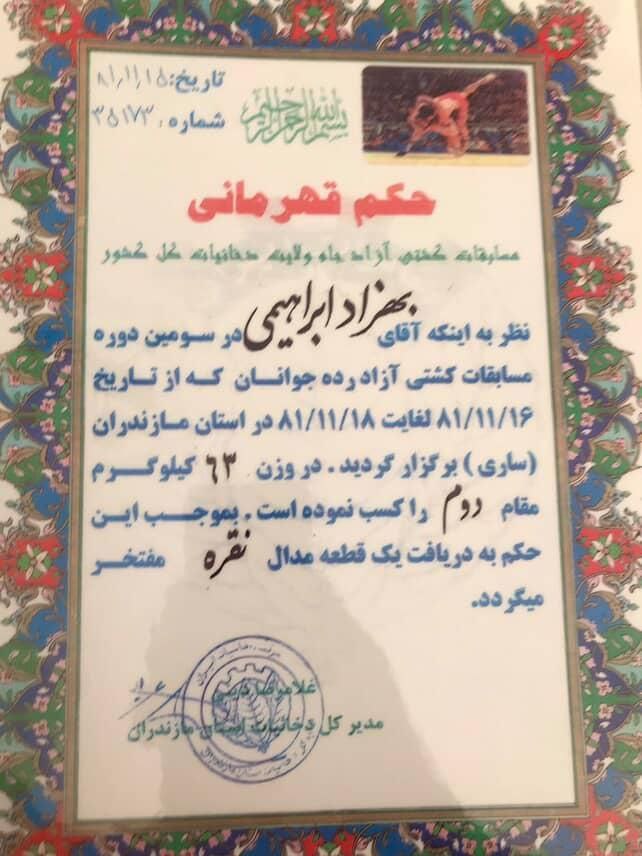 بسم الله الرحمن الرحیم
تاریخ: ۸۱/۱۱/۱۵
شماره: ۳۵۱۷۳
حکم قهرمانی
مسابقات کشتی آزاد جام ولایت دخانیات کل کشور
نظر به اینکه آقای بهزاد ابراهیمی در سومین دوره
مسابقات کشتی آزاد رده جوانان که از تاریخ
۸۱/۱۱/۱۶ لغایت ۸۱/۱۱/۱۸ در استان مازندران
(ساری) برگزار گردید. در وزن ۶۳ کیلوگرم
مقام دوم را کسب نموده است. بموجب این
حکم به دریافت یک قطعه مدال نقره مفتخر
میگردد.
غلامرضا
مدیر کل دخانیات استان مازندران